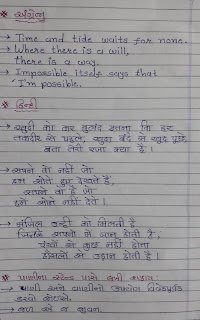 * અંગ્રેજી
→ Time and tide waits for none.
→ Where there is a will,
there is a way.
→ Impossible itself says that
I'm possible.
* हिन्दी
→ खुदी को कर बुलंद इतना कि हर
तकदीर से पहले, खुदा बंदे से खुद पूछे
बता तेरी रज़ा क्या है।
→ सपने वो नहीं जो
हम सोते हुए देखते हैं,
सपने वो है जो
हमें सोने नहीं देते।
→ मंज़िल उन्हीं को मिलती है
जिनके सपनों में जान होती है,
पंखों से कुछ नहीं होता
हौसलों से उड़ान होती है।
* પાણીના
→ પાણી અને વાણીનો ઉપયોગ
કરવો જોઈએ.
→ જળ એ જ જીવન.